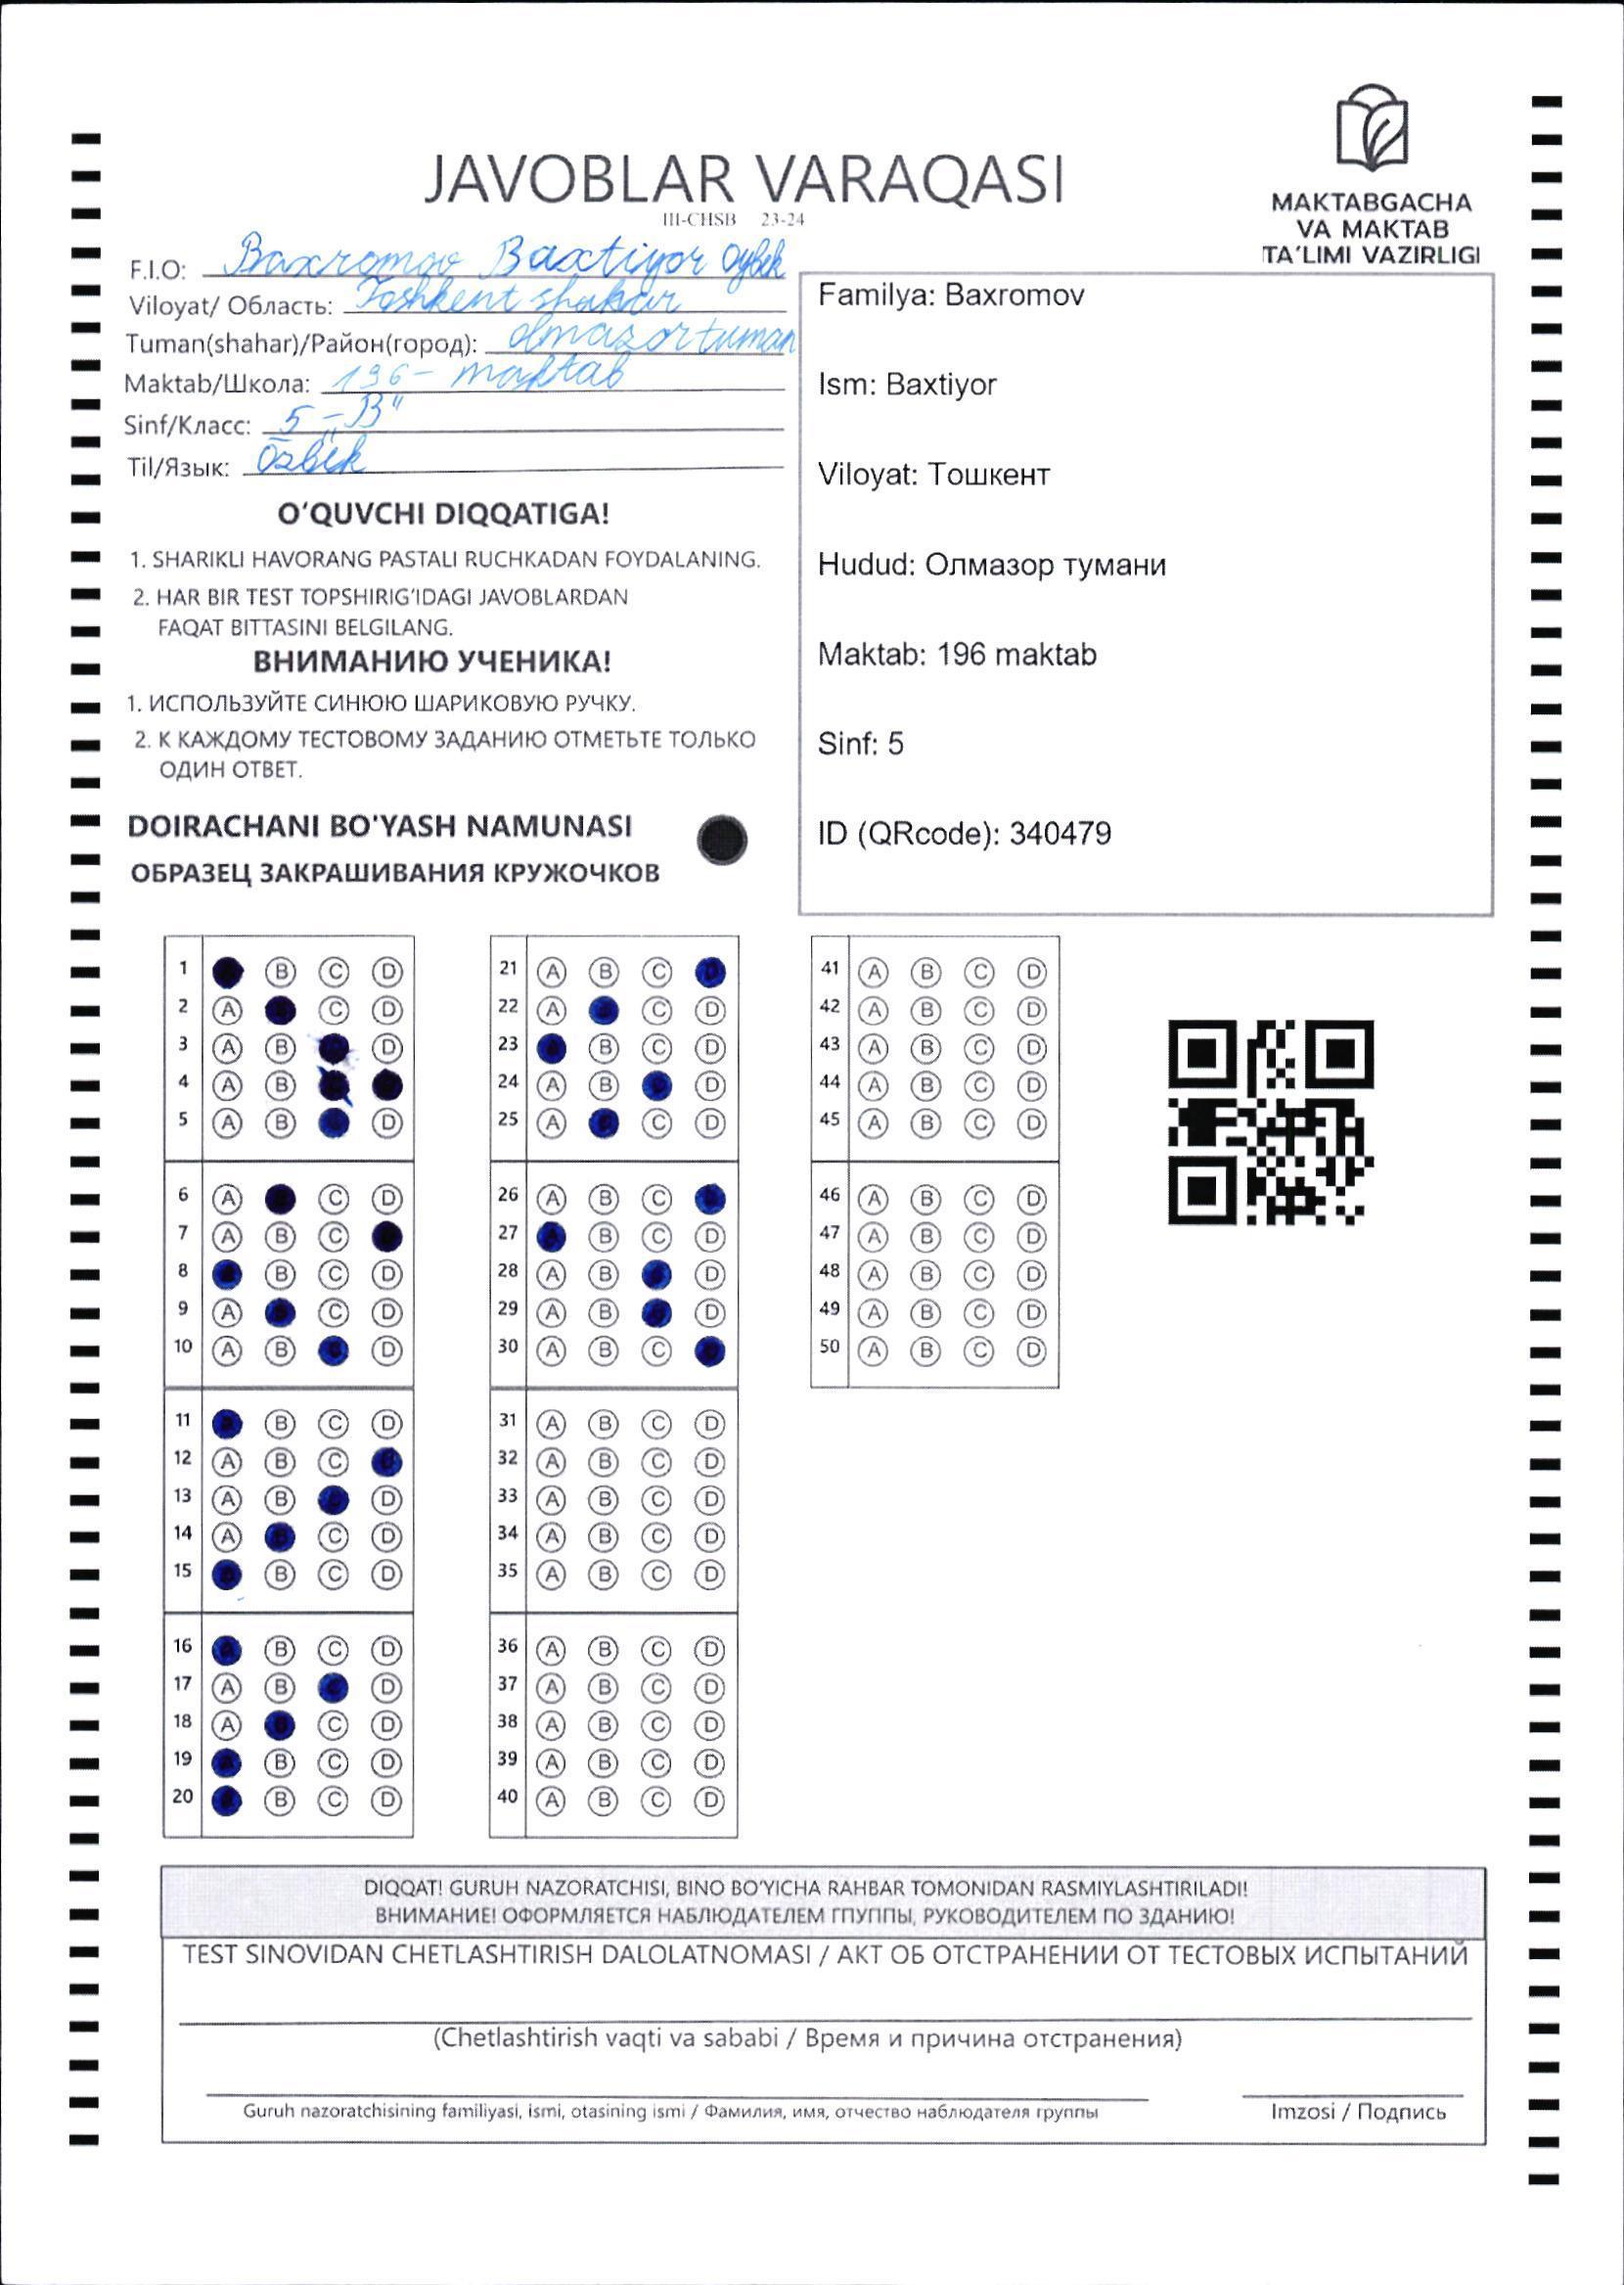 JAVOBLAR VARAQASI
III-CHSB 23-24
MAKTABGACHA
VA MAKTAB
TA'LIMI VAZIRLIGI
F.I.O: Baxromov Baxtiyor Oybek
Viloyat/ Область: Toshkent shahar
Tuman(shahar)/Район(город): olmazor tuman
Maktab/Школа: 196 - maktab
Sinf/Класс: 5 - „B"
Til/Язык: Özbek
Familya: Baxromov
Ism: Baxtiyor
Viloyat: Тошкент
Hudud: Олмазор тумани
Maktab: 196 maktab
Sinf: 5
ID (QRcode): 340479
O'QUVCHI DIQQATIGA!
1. SHARIKLI HAVORANG PASTALI RUCHKADAN FOYDALANING.
2. HAR BIR TEST TOPSHIRIG'IDAGI JAVOBLARDAN
FAQAT BITTASINI BELGILANG.
ВНИМАНИЮ УЧЕНИКА!
1. ИСПОЛЬЗУЙТЕ СИНЮЮ ШАРИКОВУЮ РУЧКУ.
2. К КАЖДОМУ ТЕСТОВОМУ ЗАДАНИЮ ОТМЕТЬТЕ ТОЛЬКО
ОДИН ОТВЕТ.
DOIRACHANI BO'YASH NAMUNASI
ОБРАЗЕЦ ЗАКРАШИВАНИЯ КРУЖОЧКОВ
1 B C D
2 A C D
3 A B D
4 A B
5 A B D
6 A C D
7 A B C
8 B C D
9 A C D
10 A B D
11 B C D
12 A B C
13 A B D
14 A C D
15 B C D
16 B C D
17 A B D
18 A C D
19 B C D
20 B C D
21 A B C
22 A C D
23 B C D
24 A B D
25 A C D
26 A B C
27 B C D
28 A B D
29 A B D
30 A B C
31 A B C D
32 A B C D
33 A B C D
34 A B C D
35 A B C D
36 A B C D
37 A B C D
38 A B C D
39 A B C D
40 A B C D
41 A B C D
42 A B C D
43 A B C D
44 A B C D
45 A B C D
46 A B C D
47 A B C D
48 A B C D
49 A B C D
50 A B C D
DIQQAT! GURUH NAZORATCHISI, BINO BO'YICHA RAHBAR TOMONIDAN RASMIYLASHTIRILADI!
ВНИМАНИЕ! ОФОРМЛЯЕТСЯ НАБЛЮДАТЕЛЕМ ГПУППЫ, РУКОВОДИТЕЛЕМ ПО ЗДАНИЮ!
TEST SINOVIDAN CHETLASHTIRISH DALOLATNOMASI / АКТ ОБ ОТСТРАНЕНИИ ОТ ТЕСТОВЫХ ИСПЫТАНИЙ
(Chetlashtirish vaqti va sababi / Время и причина отстранения)
Guruh nazoratchisining familiyasi, ismi, otasining ismi / Фамилия, имя, отчество наблюдателя группы
Imzosi / Подпись